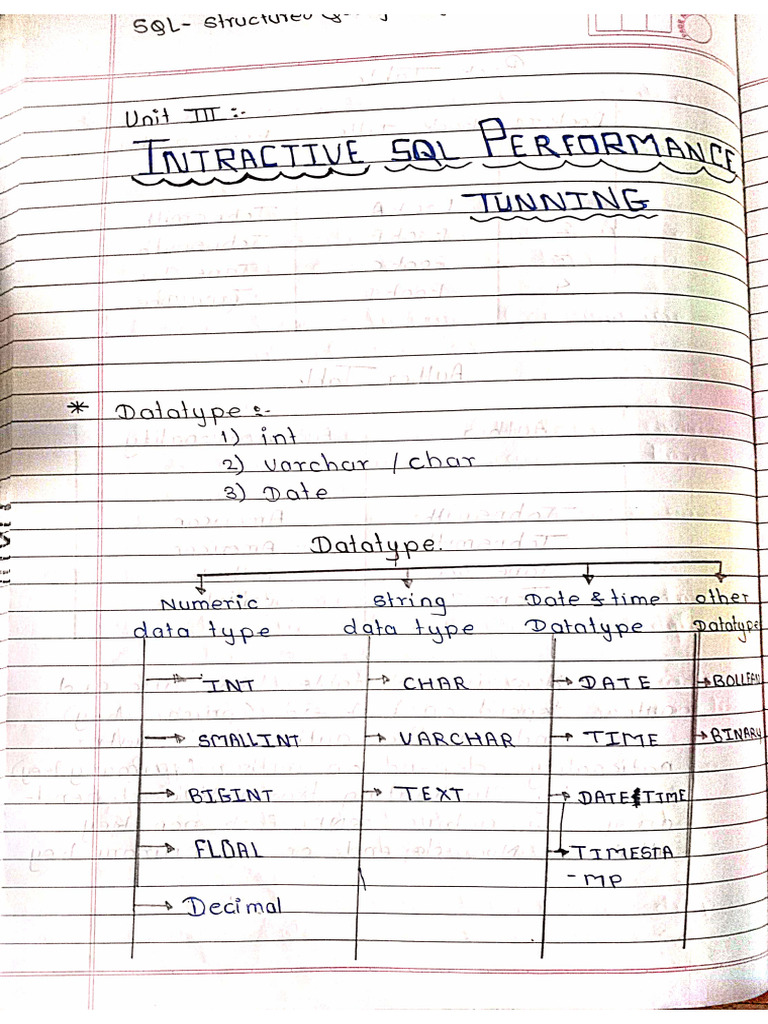 SQL- Structured
Unit III :-
INTRACTIVE SQL PERFORMANCE
TUNNING
* Datatype :-
1) int
2) varchar / char
3) Date
Datatype.
Numeric data type
String data type
Date & time Datatype
other Datatype
INT
SMALLINT
BIGINT
FLOAL
Decimal
CHAR
VARCHAR
TEXT
DATE
TIME
DATETIME
TIMESTA
-MP
BOLLEAN
BINARY